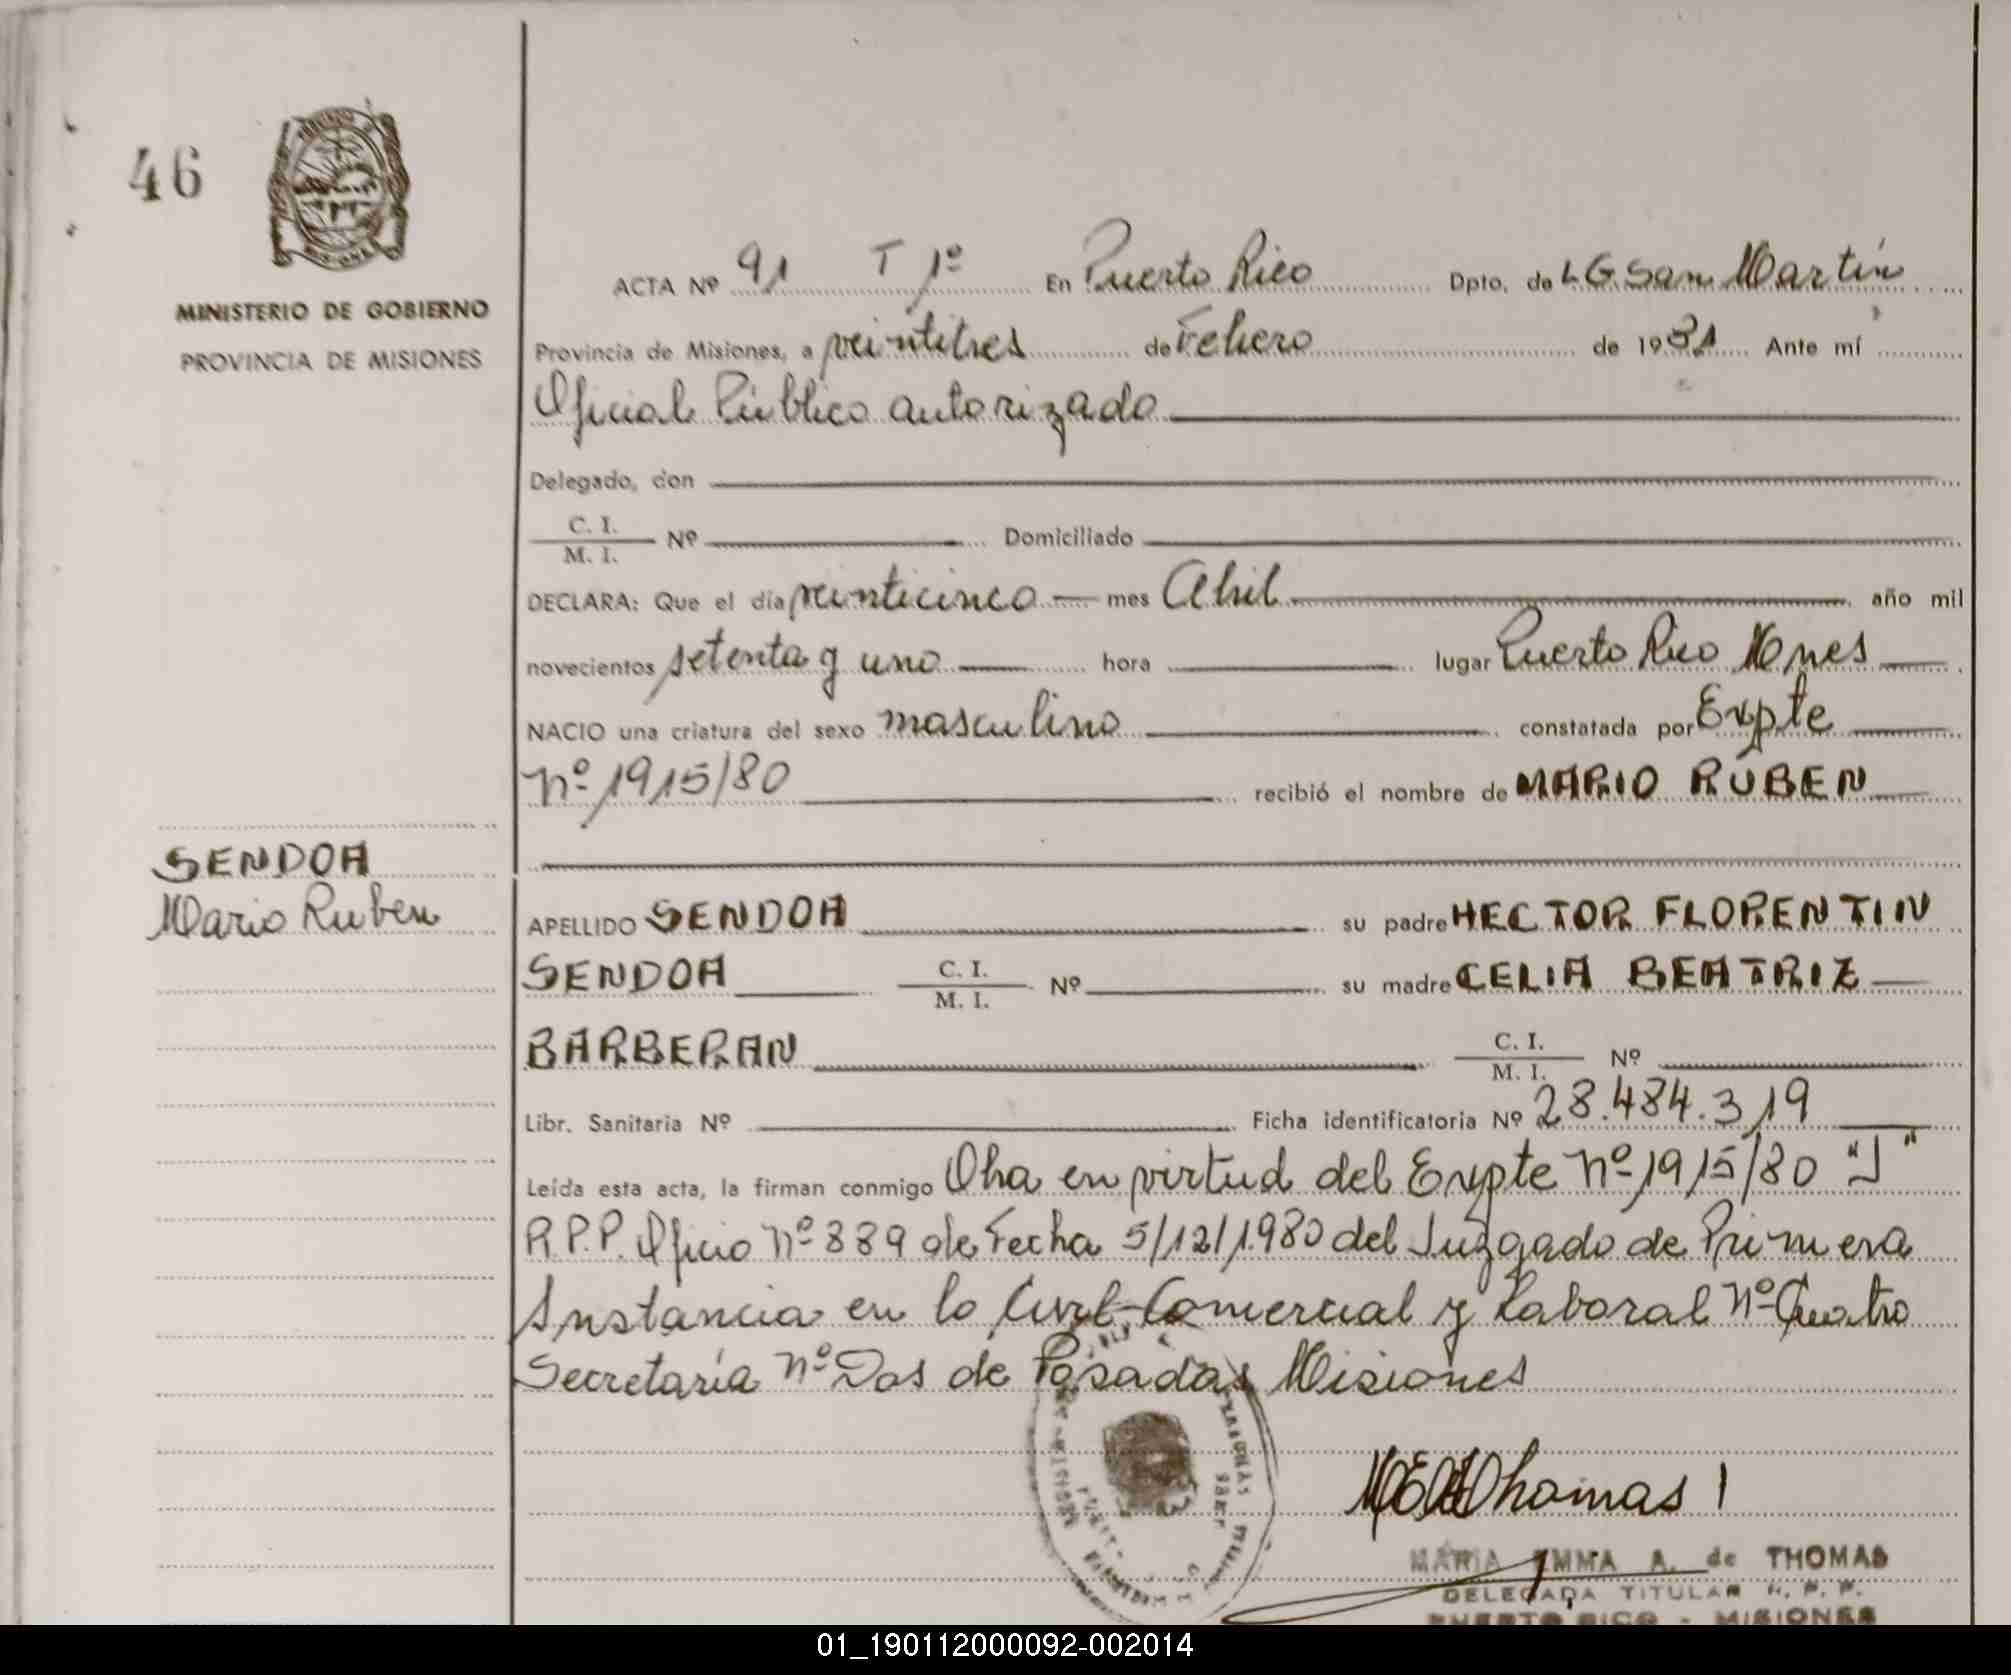 46
MINISTERIO DE GOBIERNO
PROVINCIA DE MISIONES
ACTA Nº 91 T 1º En Puerto Rico Dpto. de L G. San Martín
Provincia de Misiones, a veintitres de Febrero de 1981 Ante mí
Oficial Público autorizado
Delegado, don
C. I.
M. I. Nº Domiciliado
DECLARA: Que el día veinticinco mes Abril año mil
novecientos setenta y uno hora lugar Puerto Rico Mnes
NACIO una criatura del sexo masculino constatada por Expte
nº 1915/80 recibió el nombre de MARIO RUBEN
SENDOA
Mario Ruben
APELLIDO SENDOA su padre HECTOR FLORENTIN
SENDOA C. I.
M. I. Nº su madre CELIA BEATRIZ
BARBERAN C. I.
M. I. Nº
Libr. Sanitaria Nº Ficha identificatoria Nº 28.484.319
Leída esta acta, la firman conmigo Oha en virtud del Expte nº 1915/80 "J"
R.P.P. Oficio nº 889 de Fecha 5/12/1980 del Juzgado de Primera
Instancia en lo Civil Comercial y Laboral nº Cuatro
Secretaría nº Dos de Posadas Misiones
Thomas
MARIA EMMA A. de THOMAS
DELEGADA TITULAR R. P. P.
PUERTO RICO - MISIONES
01_190112000092-002014